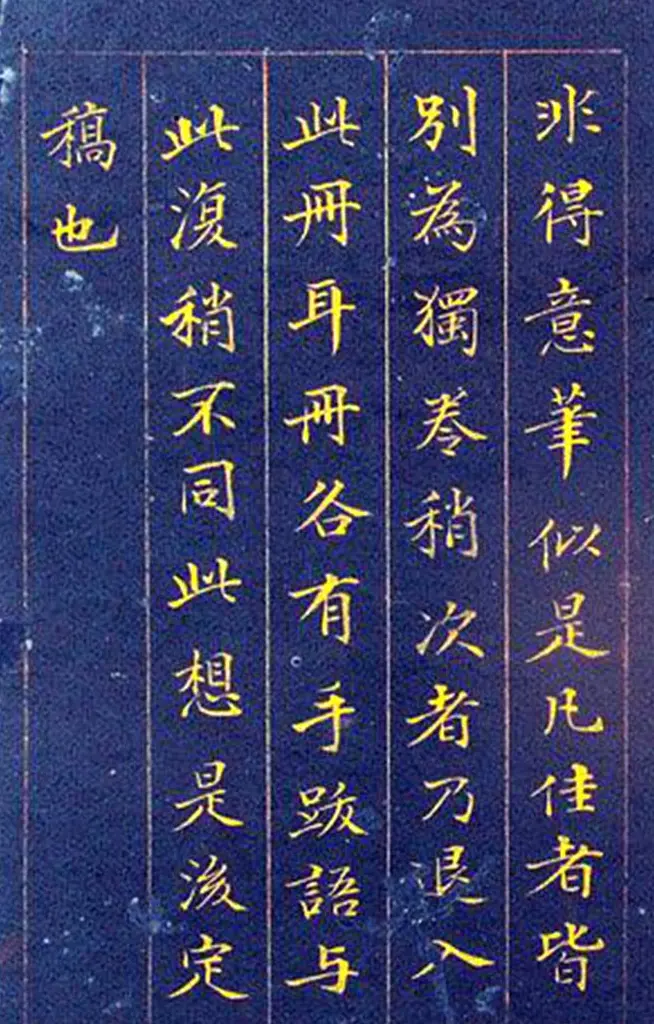 非得意筆似是凡佳者皆
別為獨卷稍次者乃退入
此冊耳冊各有手跋語与
此復稍不同此想是後定
稿也